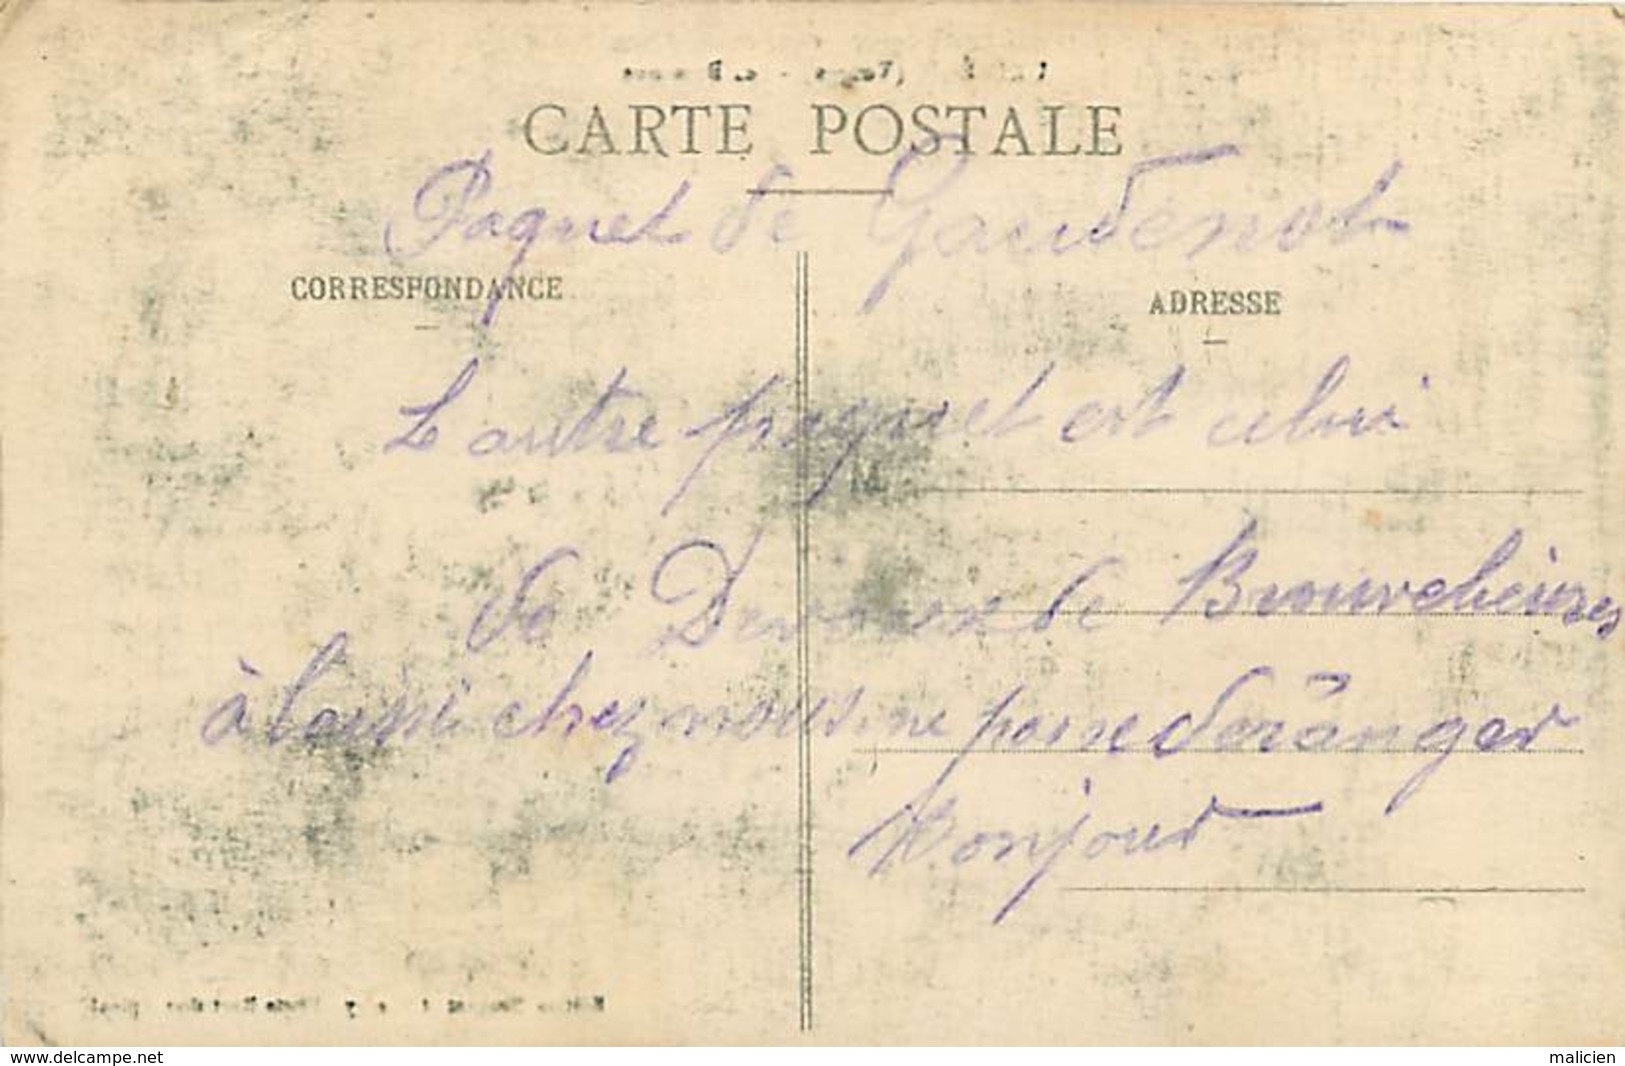 CARTE POSTALE
Paquet de Gaudenot
CORRESPONDANCE
ADRESSE
L autre paquet est celui
M
de Devoux de Brouvelieures
à laissé chez nous ne passe deranger
Bonjour
www.delcampe.net
malicien